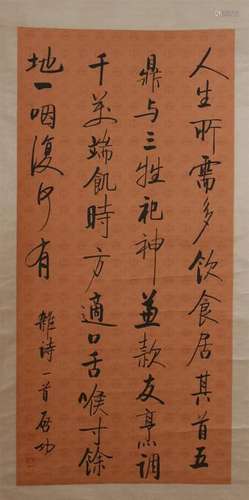 人生所需多飲食居其首五
鼎与三牲祀神兼款友烹调
千萬端飢時方適口舌喉寸餘
地一咽復何有
雜诗一首启功